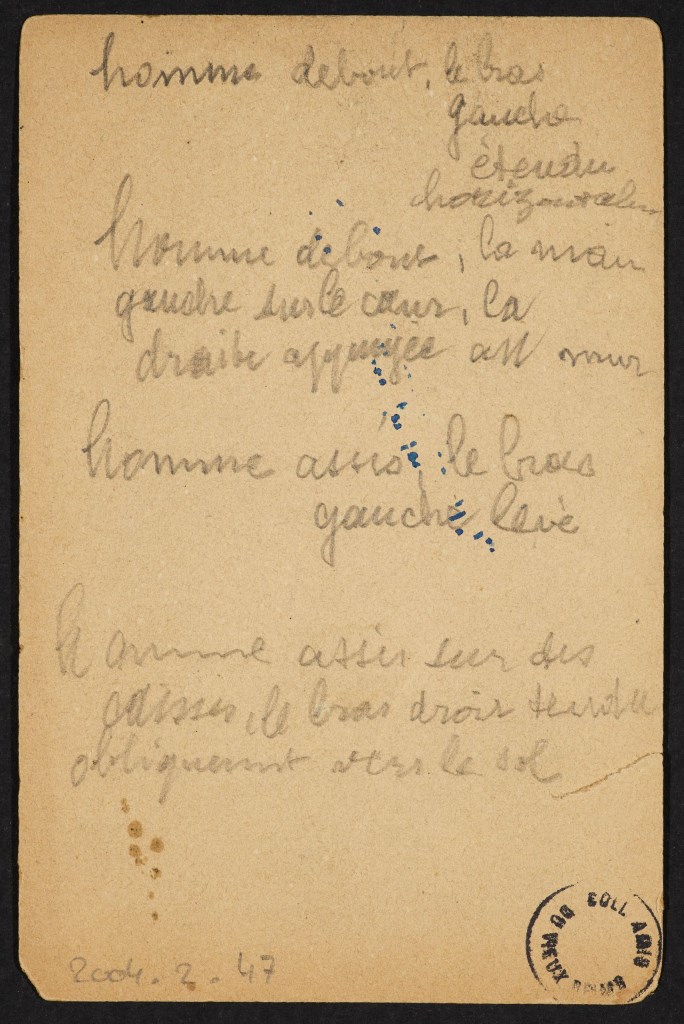 homme debout, le bras
gauche
étendu
horizontalem
homme debout, la main
gauche sur le cœur, la
droite appuyée au mur
homme assis, le bras
gauche levé
homme assis sur des
caisses, le bras droit tendu
obliquement vers le sol
COLL AMIS DU VIEUX REIMS
2004. 2. 47